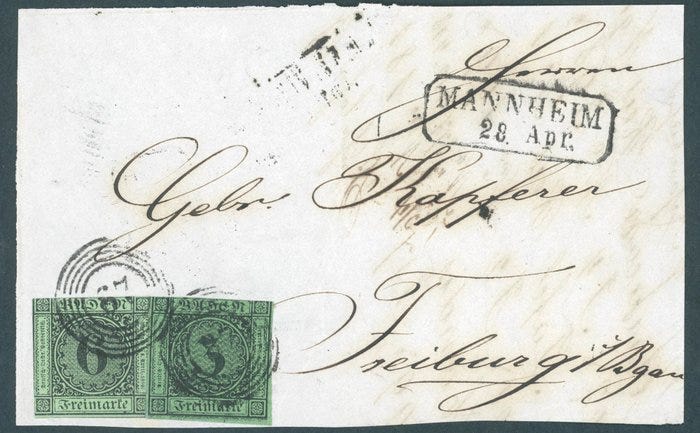 Herren
MANNHEIM
28 Apr.
Gebr. Kapferer
Freiburg i/Bgau
BADEN
6
Freimarke
BADEN
3
Freimarke